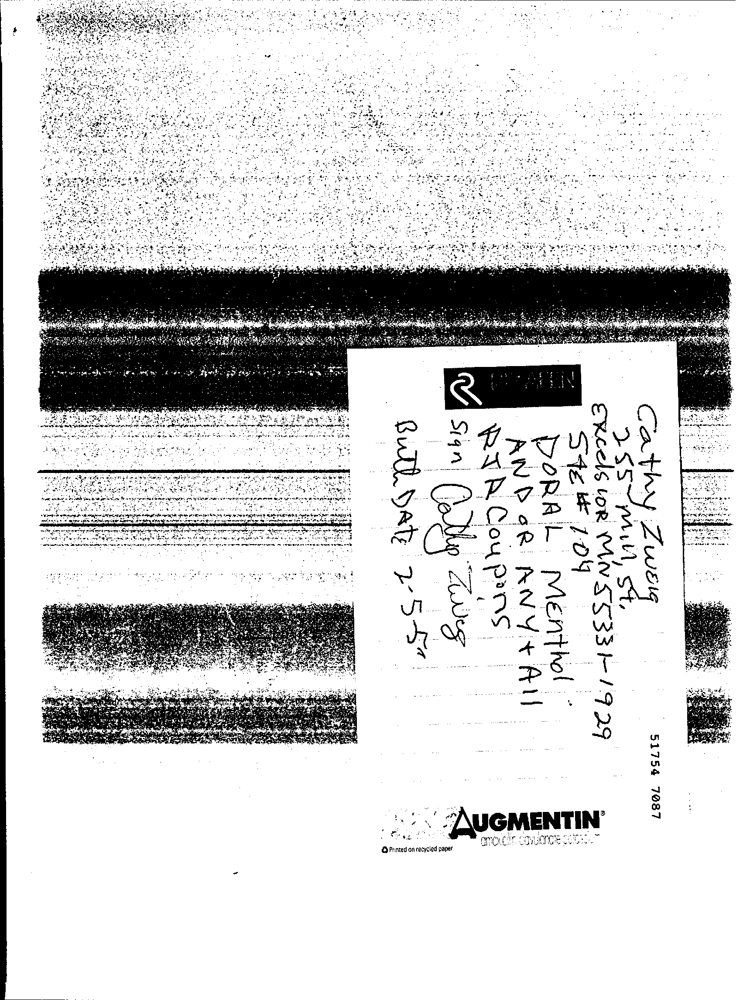 Cathy Zweig
255 Mill, St.
Excelsior MN 55331-1929
STE # 104
DORAL Menthol
AND OR ANY + All
RJR Coupons
Sign Cathy Zweig
Birth DATE 2-5-5
51754 7087
AUGMENTIN®
amoxicillin clavulanate potassium
Printed on recycled paper